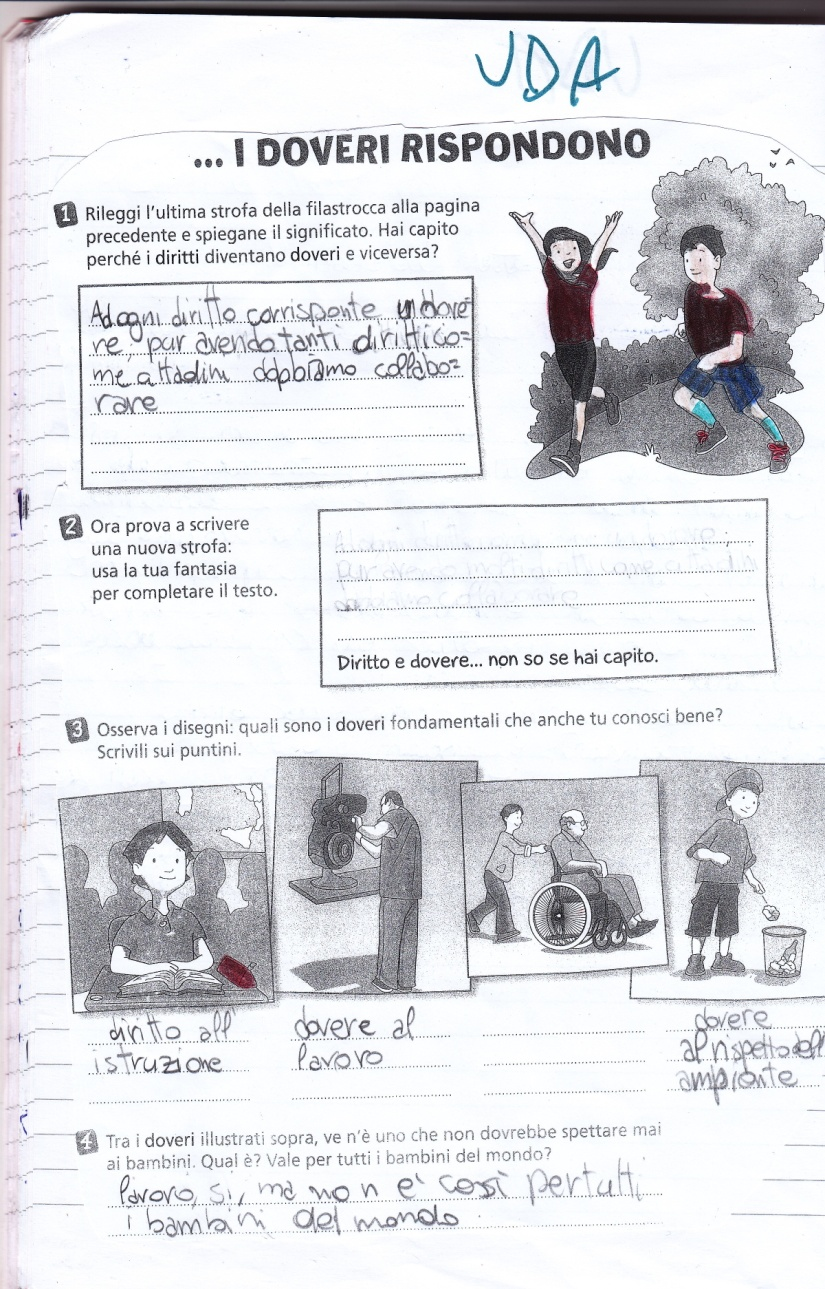 UDA
... I DOVERI RISPONDONO
1 Rileggi l'ultima strofa della filastrocca alla pagina
precedente e spiegane il significato. Hai capito
perché i diritti diventano doveri e viceversa?
Ad ogni diritto corrisponte un dove=
re, pur avendo tanti diritti co=
me attadini dobbiamo collabo=
rare
2 Ora prova a scrivere
una nuova strofa:
usa la tua fantasia
per completare il testo.
Diritto e dovere... non so se hai capito.
3 Osserva i disegni: quali sono i doveri fondamentali che anche tu conosci bene?
Scrivili sui puntini.
diritto all
istruzione
dovere al
lavoro
dovere
al rispetto dell
ambiente
4 Tra i doveri illustrati sopra, ve n'è uno che non dovrebbe spettare mai
ai bambini. Qual è? Vale per tutti i bambini del mondo?
lavoro, si, ma non e' così per tutti
i bambini del mondo